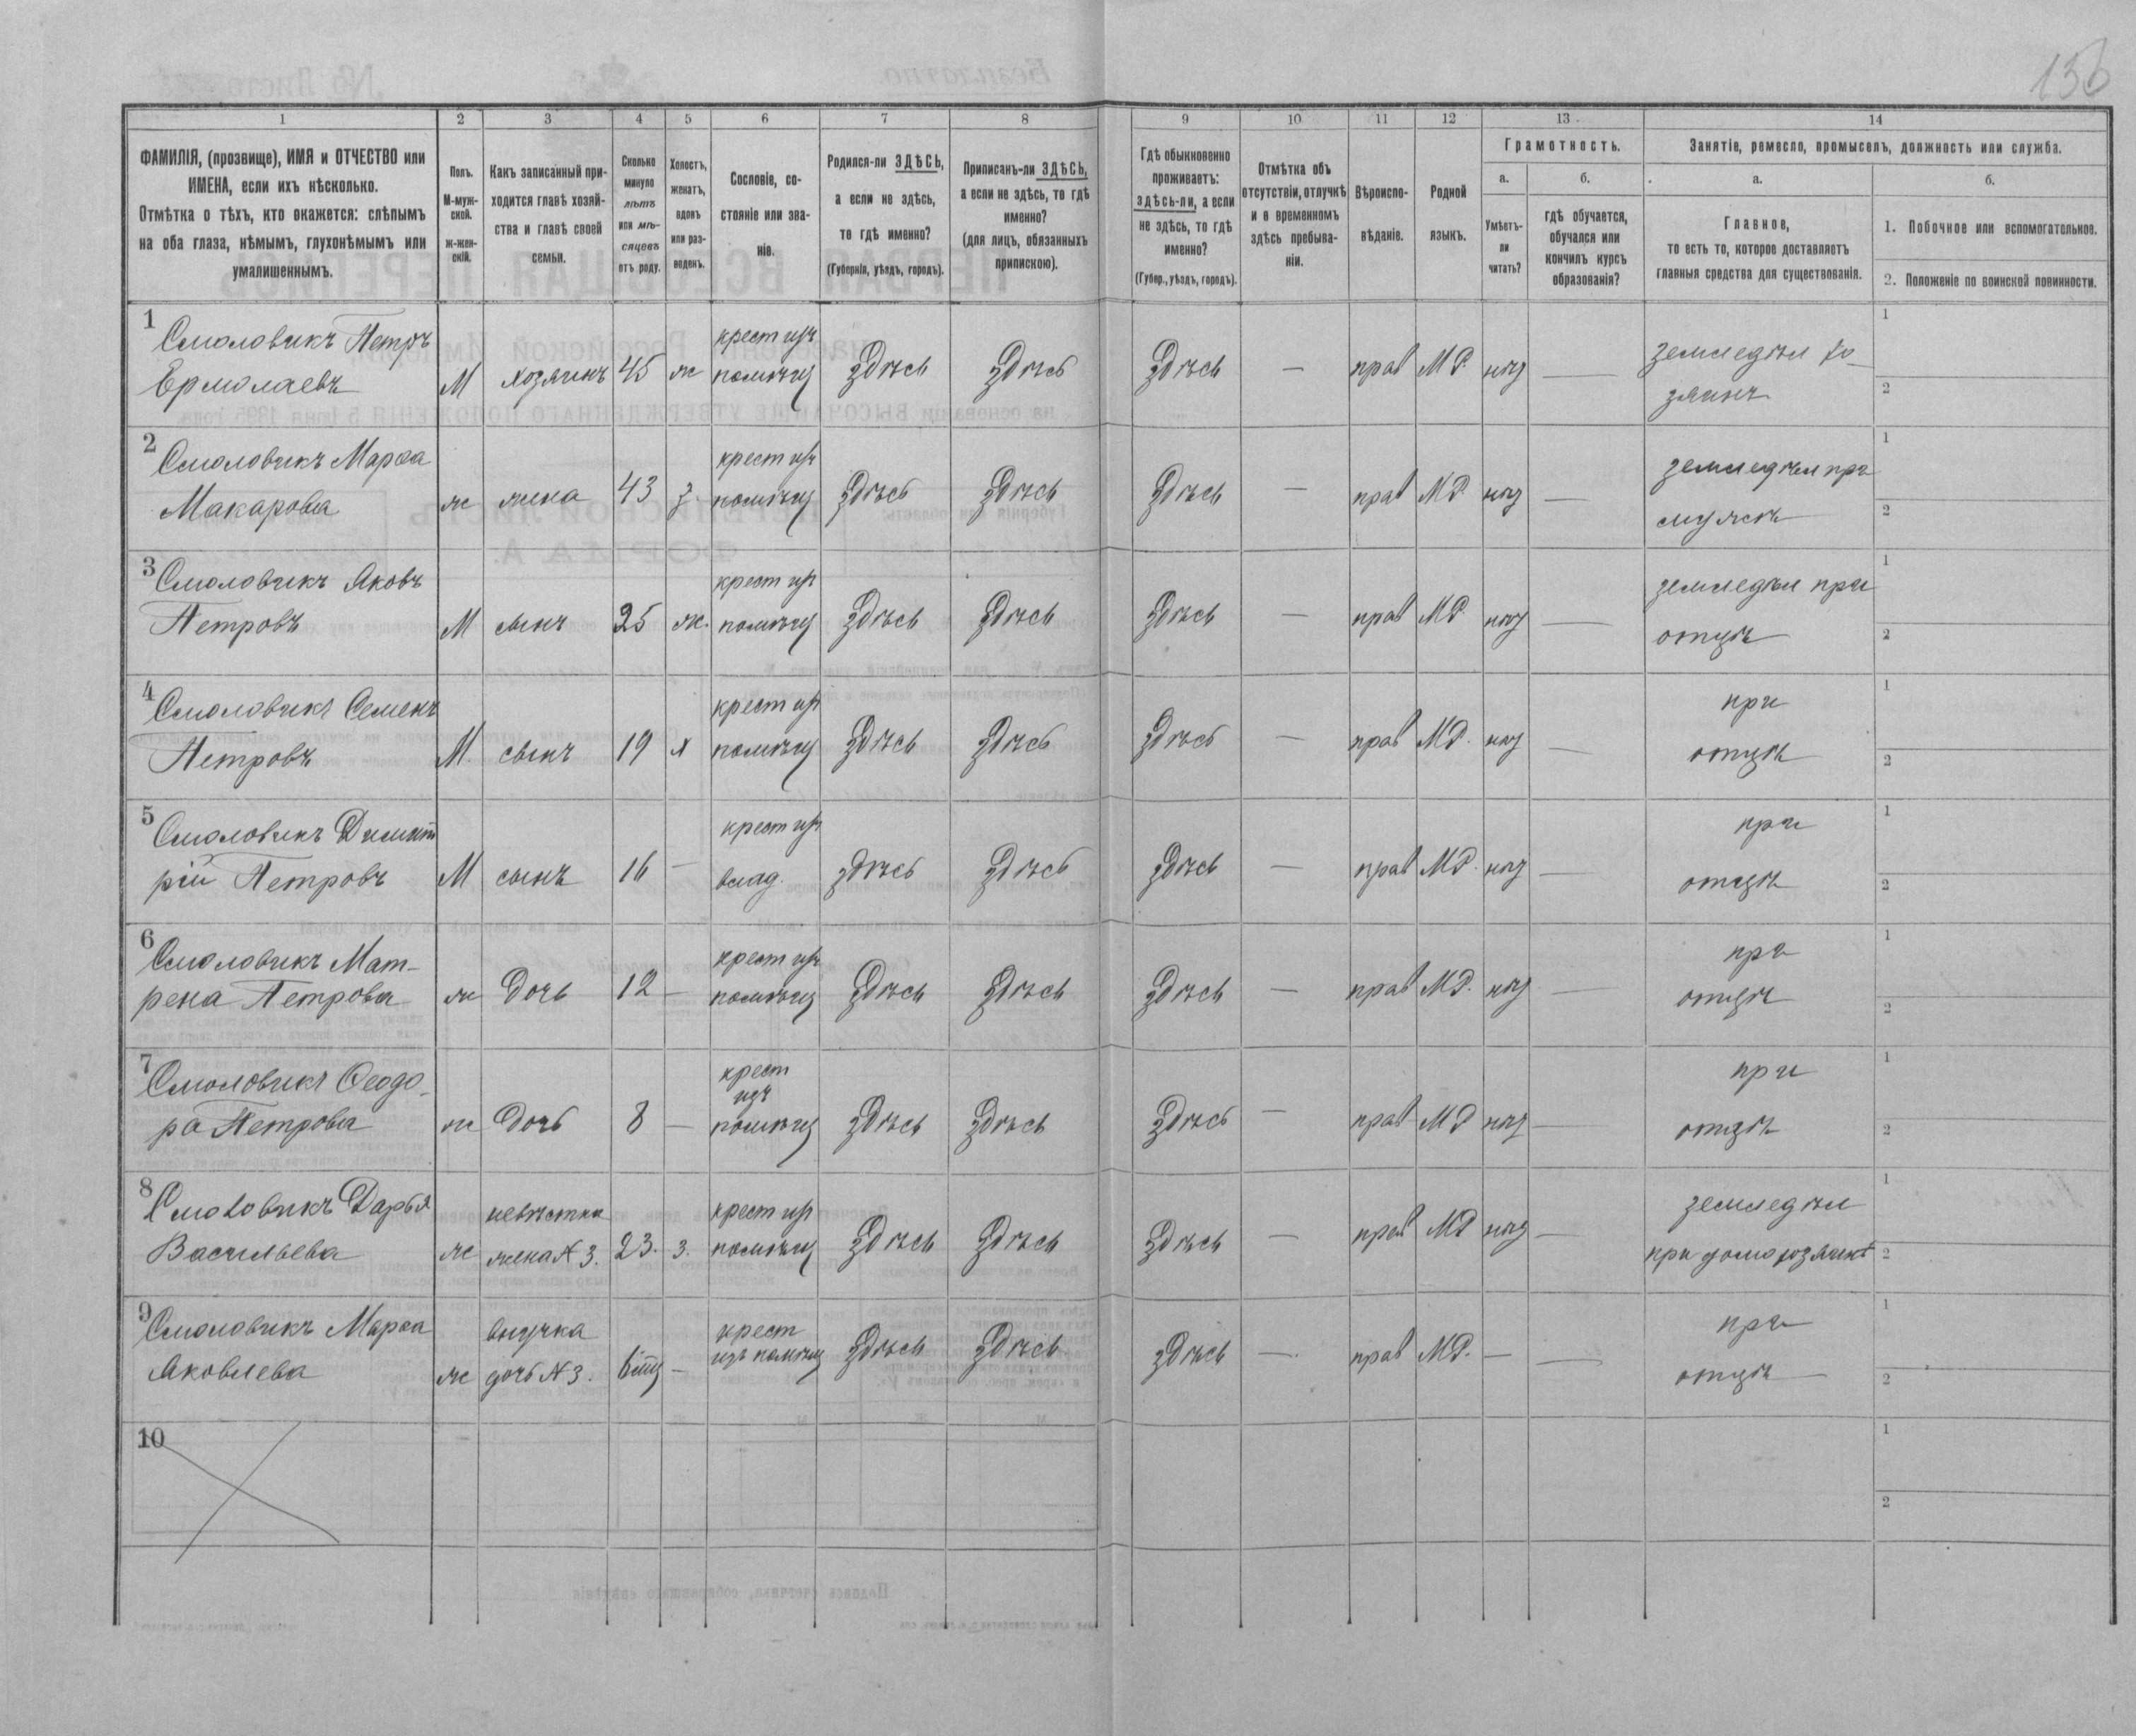 136
1 2 3 4 5 6 7 8 9 10 11 12 13 14
ФАМИЛІЯ, (прозвище), ИМЯ и ОТЧЕСТВО или
ИМЕНА, если ихъ нѣсколько.
Отмѣтка о тѣхъ, кто окажется: слѣпымъ
на оба глаза, нѣмымъ, глухонѣмымъ или
умалишеннымъ.
Полъ.
М-муж-
ской.
ж-жен-
скій.
Какъ записанный при-
ходится главѣ хозяй-
ства и главѣ своей
семьи.
Сколько
минуло
лѣтъ
или мѣ-
сяцевъ
отъ роду.
Холостъ,
женатъ,
вдовъ
или раз-
веденъ.
Сословіе, со-
стояніе или зва-
ніе.
Родился-ли ЗДѢСЬ,
а если не здѣсь,
то гдѣ именно?
(Губернія, уѣздъ, городъ).
Приписанъ-ли ЗДѢСЬ,
а если не здѣсь, то гдѣ
именно?
(для лицъ, обязанныхъ
припискою).
Гдѣ обыкновенно
проживаетъ:
здѣсь-ли, а если
не здѣсь, то гдѣ
именно?
(Губер., уѣздъ, городъ).
Отмѣтка объ
отсутствіи, отлучкѣ
и о временномъ
здѣсь пребыва-
ніи.
Вѣроиспо-
вѣданіе.
Родной
языкъ.
Грамотность.
а.
Умѣетъ-
ли
читать?
б.
гдѣ обучается,
обучался или
кончилъ курсъ
образованія?
Занятіе, ремесло, промыселъ, должность или служба.
а.
Главное,
то есть то, которое доставляетъ
главныя средства для существованія.
б.
1. Побочное или вспомогательное.
2. Положеніе по воинской повинности.
1 Смоловикъ Петръ крест изъ земледѣл хо- 1
Ермолаевъ М хозяинъ 45 ж помѣщ здѣсь здѣсь здѣсь — прав МР. нѣт — зяинъ 2
2 Смоловикъ Марѳа крест изъ земледѣл при 1
Макарова ж жена 43 з помѣщ здѣсь здѣсь здѣсь — прав МР. нѣт — мужѣ 2
3 Смоловикъ Яковъ крест изъ земледѣл при 1
Петровъ М сынъ 25 ж. помѣщ здѣсь здѣсь здѣсь — прав МР нѣт — отцѣ 2
4 Смоловикъ Семенъ крест изъ при 1
Петровъ М. сынъ 19 х помѣщ здѣсь здѣсь здѣсь — прав МР. нѣт — отцѣ 2
5 Смоловикъ Димит крест изъ при 1
рій Петровъ М сынъ 16 — влад. здѣсь здѣсь здѣсь — прав МР. нѣт — отцѣ 2
6 Смоловикъ Мат- крест изъ при 1
рена Петрова ж дочь 12 — помѣщ здѣсь здѣсь здѣсь — прав МР. нѣт — отцѣ 2
7 Смоловикъ Ѳеодо- крест изъ при 1
ра Петрова ж дочь 8 — помѣщ здѣсь здѣсь здѣсь — прав МР нѣт — отцѣ 2
8 Смоловикъ Дарья невѣстка крест изъ земледѣл 1
Васильева ж жена N 3. 23. з. помѣщ здѣсь здѣсь здѣсь — прав МР нѣт — при домохозяинѣ 2
9 Смоловикъ Марѳа внучка крест при 1
Яковлева ж дочь N 3. — изъ помѣщ здѣсь здѣсь здѣсь — прав МР. — — отцѣ 2
10 1
2